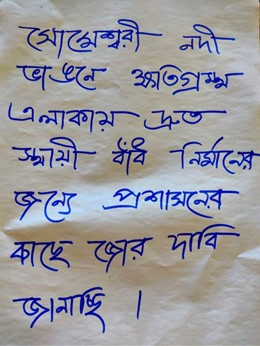 সোমেশ্বরী নদী
ভাঙনে ক্ষতিগ্রস্ত
এলাকায় দ্রুত
স্থায়ী বাঁধ নির্মানের
জন্যে প্রশাসনের
কাছে জোর দাবি
জানাচ্ছি ।